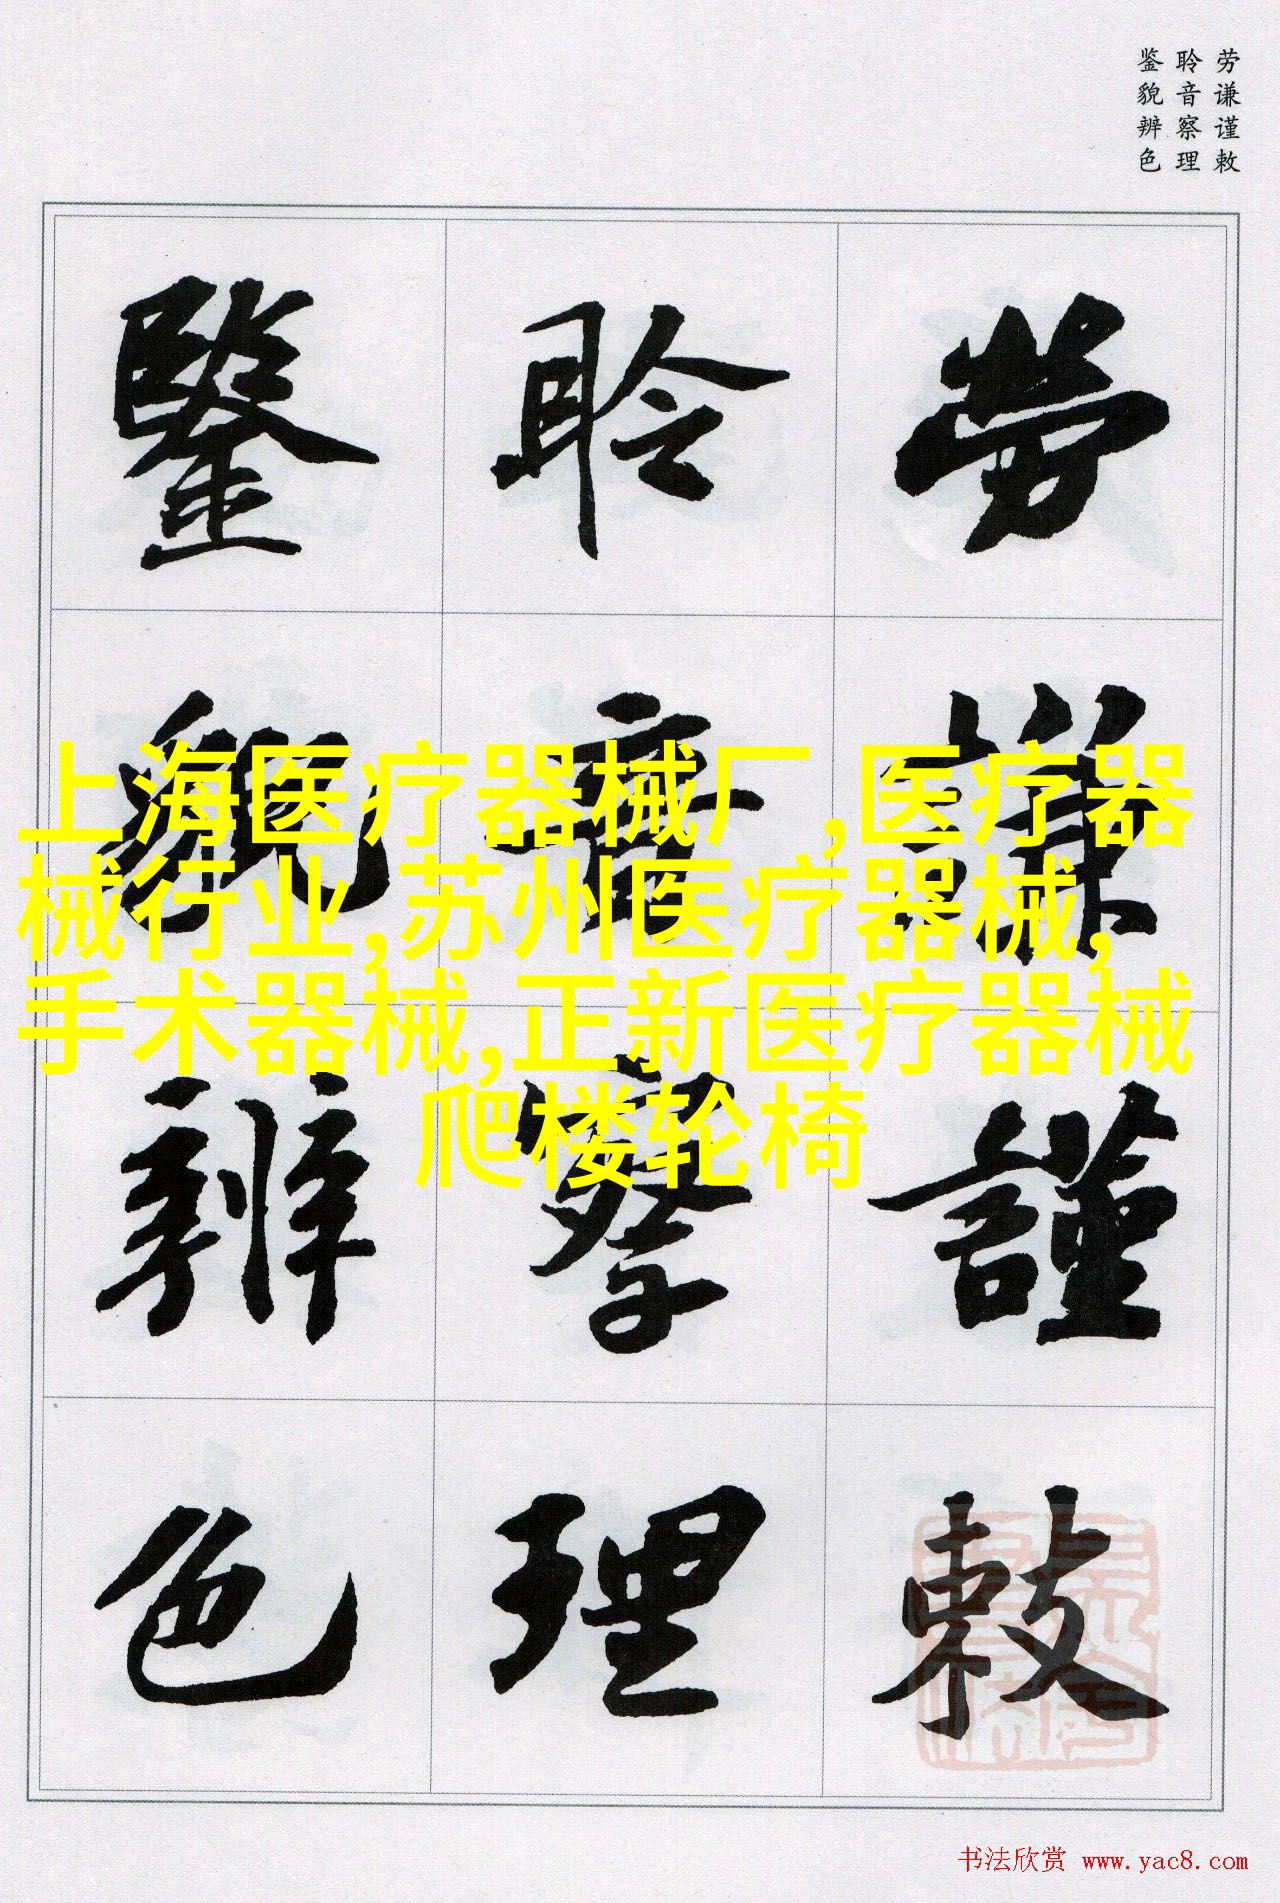 劳谦谨敕
聆音察理
鉴貌辨色
勞謙謹敕
聆音察理
鑒貌辨色
上海医疗器械厂,医疗器
械行业,苏州医疗器械,
手术器械,正新医疗器械
爬楼轮椅
书法欣赏 www.yac8.com